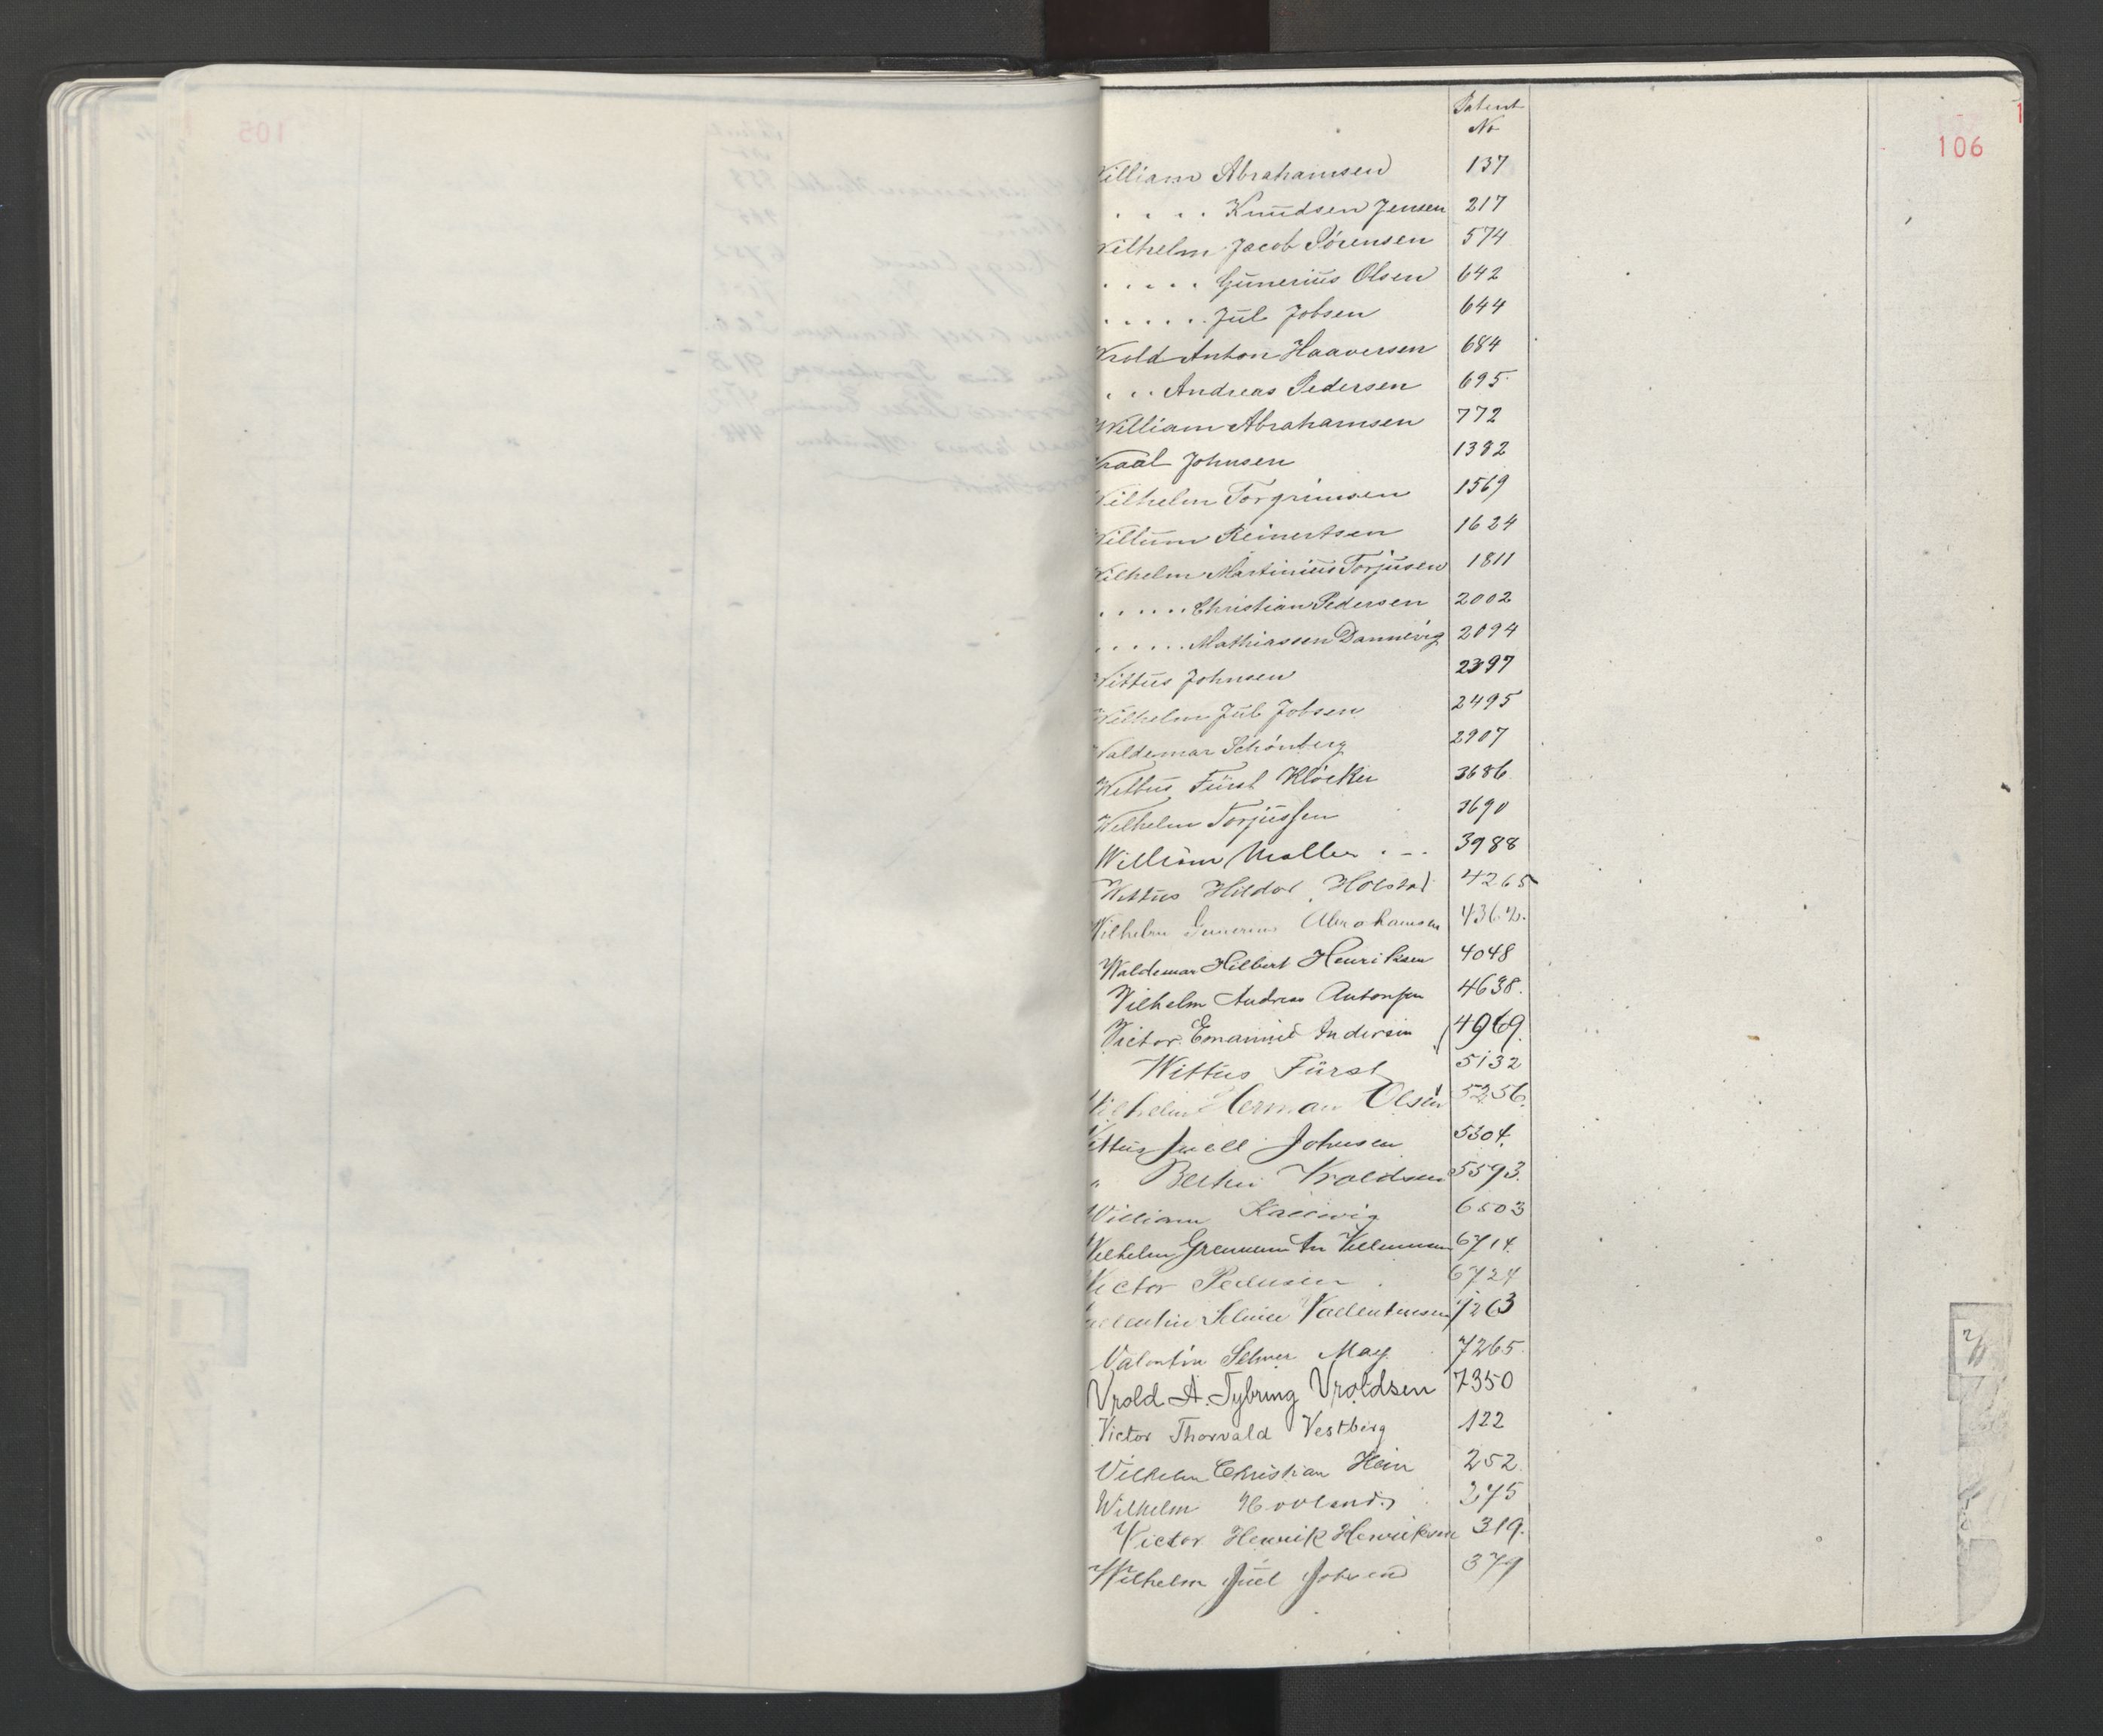 Patent
No
106
William Abrahamsen 137
. . . . Knudsen Jensen 217
Wilhelm Jacob Sörensen 574
. . . . . Gunerius Olsen 642
. . . . . Jul Jobsen 644
Wrold Anton Haaversen 684
. . . Andreas Pedersen 695
William Abrahamsen 772
Johnsen 1382
Wilhelm Torgrimsen 1569
Willum Reinertsen 1624
Wilhelm Martinius Torjusen 1811
. . . . . . Christian Pedersen 2002
. . . . . . Mathiassen Dannevig 2094
Wittus Johnsen 2397
Wilhelm Jul Jobsen 2495
Valdemar Schönberg 2907
Wittus Fürst Klöcker 3686
Wilhelm Torjussen 3690
William Møller 3988
Wittus Hildor Holstad 4265
Wilhelm Gunerius Abrahamsen 4362.
Waldemar Hilbert Henriksen 4048
Vilhelm Andreas Antonsen 4638.
Victor Emanuel Andersen 4969.
Wittus Fürst 5132
Vilhelm Herman Olsen 5256.
Vittus Juell Johnsen 5304.
" Vroldsen 5593.
William Kallevig 6503
Wilhelm 6714.
Victor Pedersen 6724
Valentin Selmer Vallentinsen 7263
Valentin Selmer May 7265
Vrold A. Tybring Vroldsen 7350
Victor Thorvald Vestberg 122
Vilhelm Christian Hein 252.
Wilhelm Hovland 275
Victor Henrik Henriksen 319.
Wilhelm Juel Jobsen 379